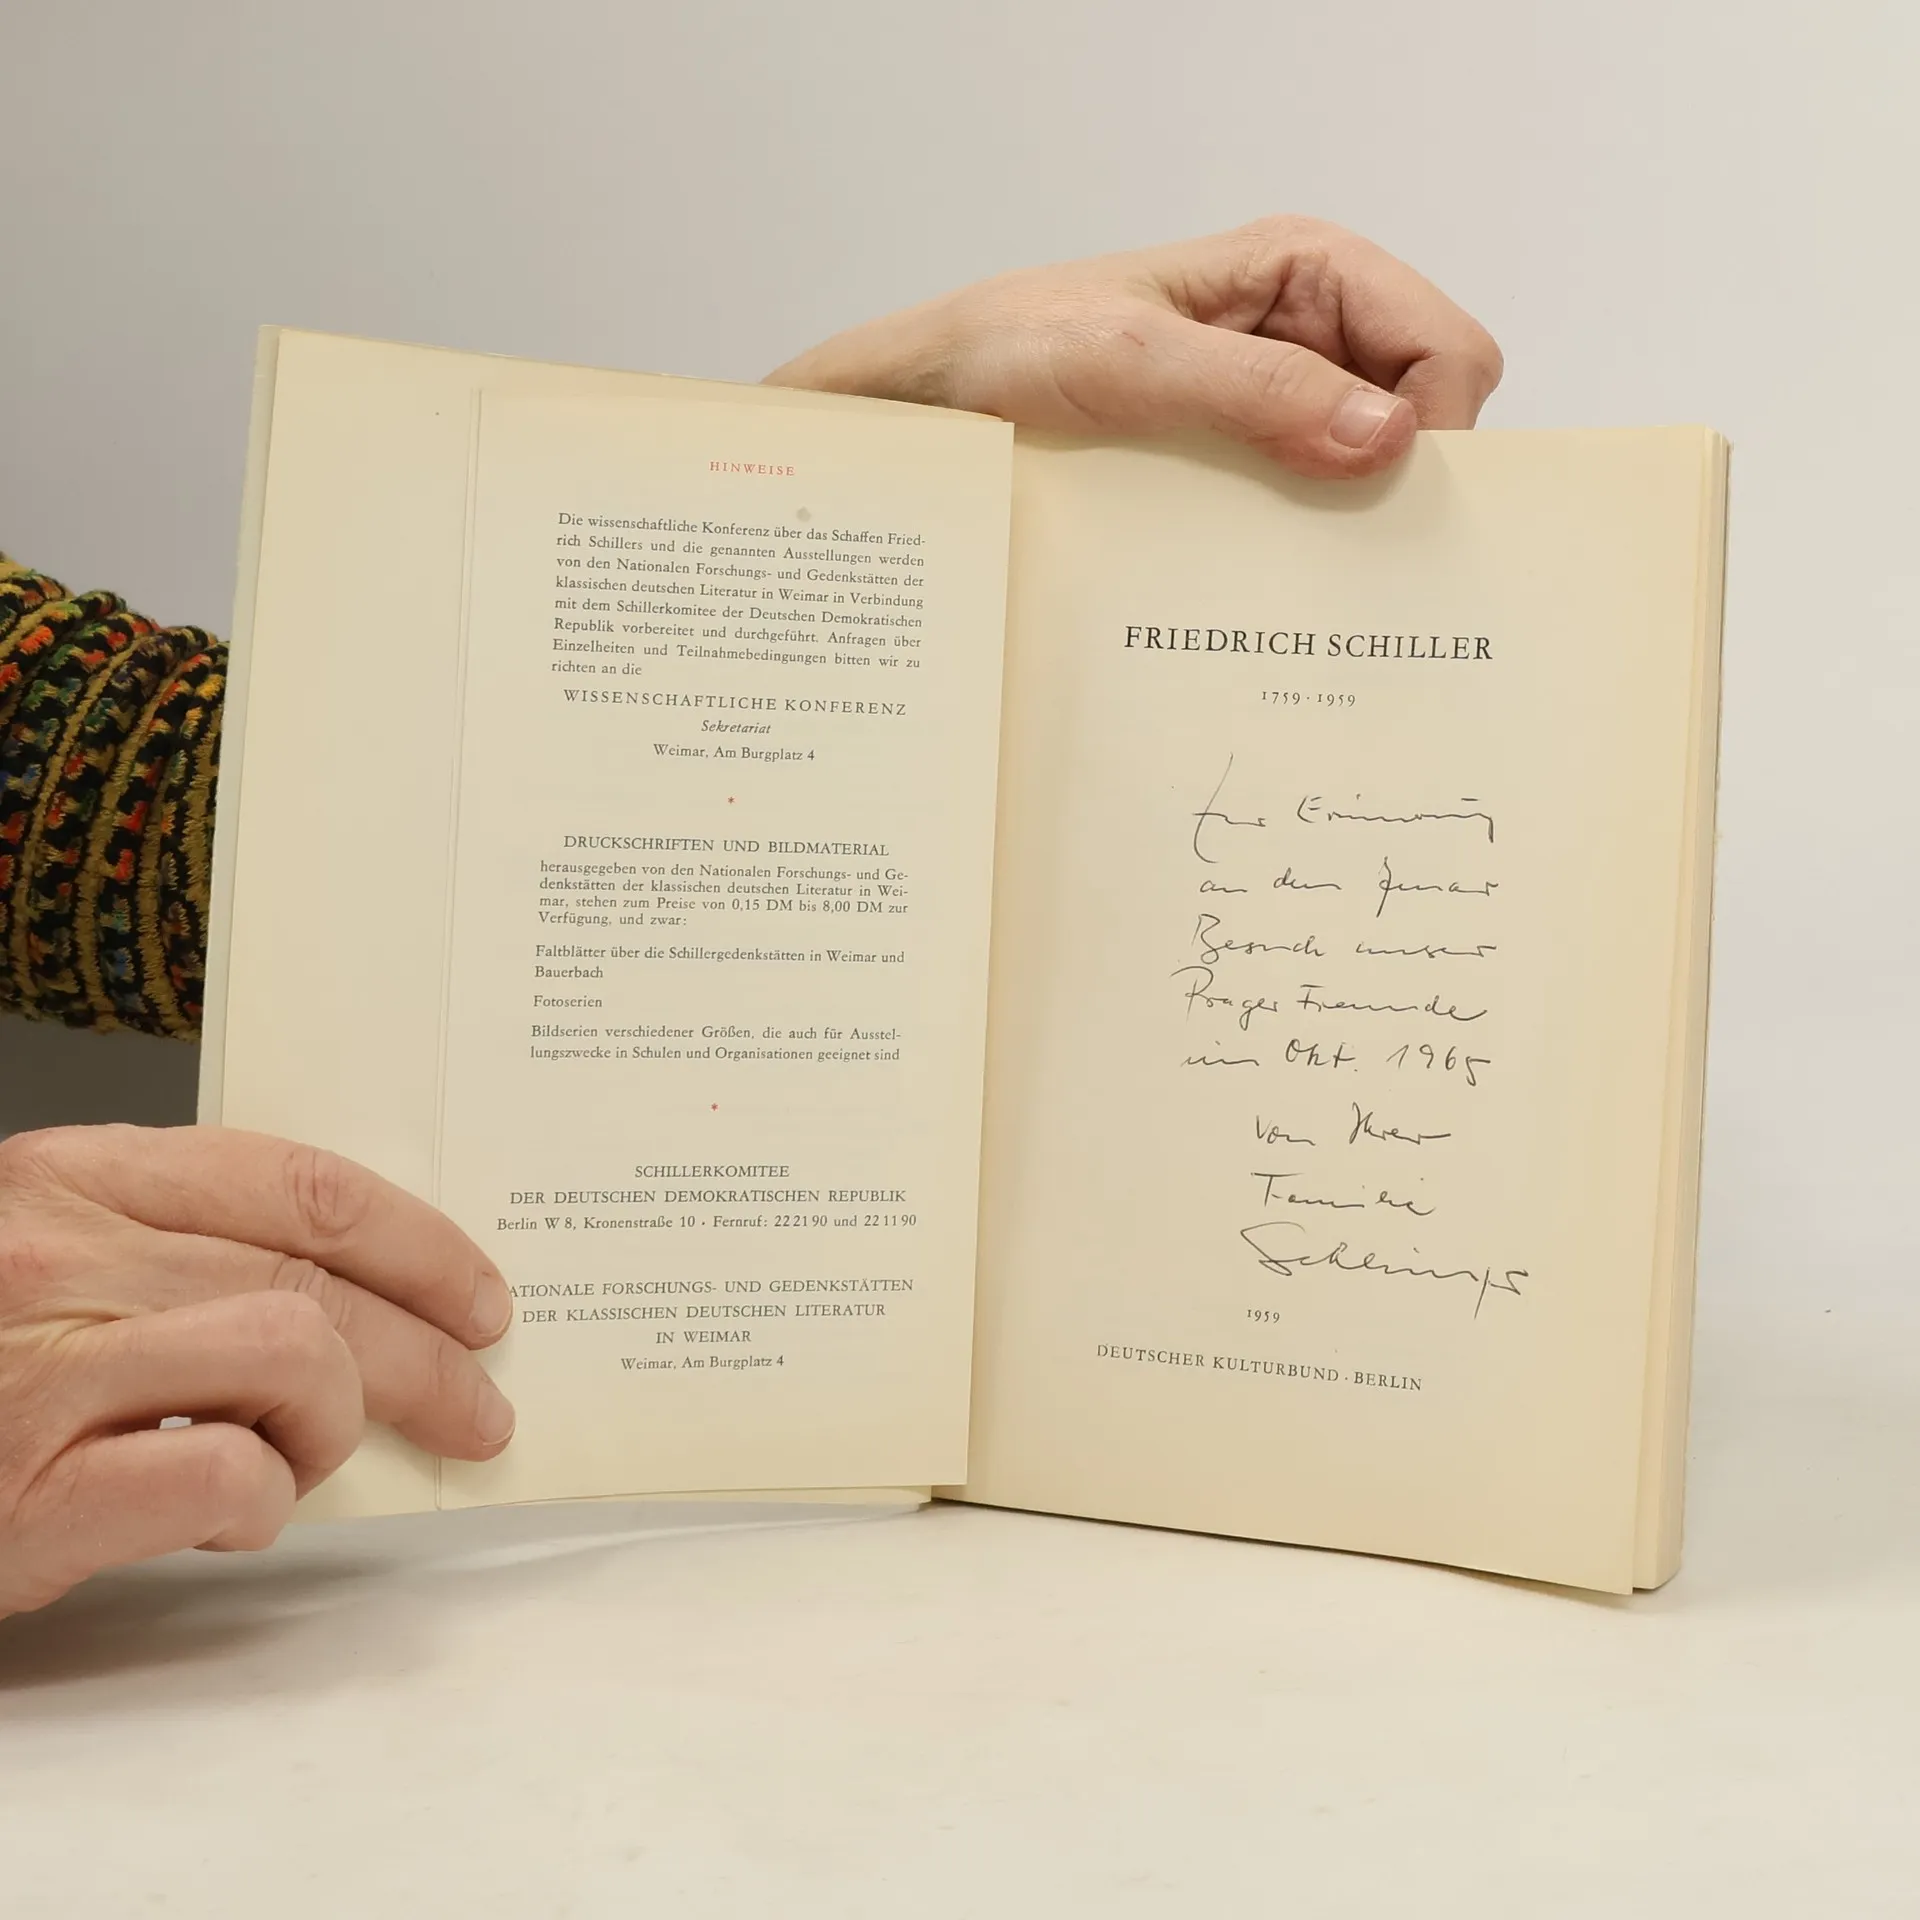 HINWEISE
Die wissenschaftliche Konferenz über das Schaffen Fried-
rich Schillers und die genannten Ausstellungen werden
von den Nationalen Forschungs- und Gedenkstätten der
klassischen deutschen Literatur in Weimar in Verbindung
mit dem Schillerkomitee der Deutschen Demokratischen
Republik vorbereitet und durchgeführt. Anfragen über
Einzelheiten und Teilnahmebedingungen bitten wir zu
richten an die
WISSENSCHAFTLICHE KONFERENZ
Sekretariat
Weimar, Am Burgplatz 4
*
DRUCKSCHRIFTEN UND BILDMATERIAL
herausgegeben von den Nationalen Forschungs- und Ge-
denkstätten der klassischen deutschen Literatur in Wei-
mar, stehen zum Preise von 0,15 DM bis 8,00 DM zur
Verfügung, und zwar:
Faltblätter über die Schillergedenkstätten in Weimar und
Bauerbach
Fotoserien
Bildserien verschiedener Größen, die auch für Ausstel-
lungszwecke in Schulen und Organisationen geeignet sind
*
SCHILLERKOMITEE
DER DEUTSCHEN DEMOKRATISCHEN REPUBLIK
Berlin W 8, Kronenstraße 10 · Fernruf: 22 21 90 und 22 11 90
ATIONALE FORSCHUNGS- UND GEDENKSTÄTTEN
DER KLASSISCHEN DEUTSCHEN LITERATUR
IN WEIMAR
Weimar, Am Burgplatz 4
FRIEDRICH SCHILLER
1759 · 1959
Zur Erinnerung
an den Jenaer
Besuch unserer
Prager Freunde
im Okt. 1965
von Ihrer
Familie
1959
DEUTSCHER KULTURBUND · BERLIN